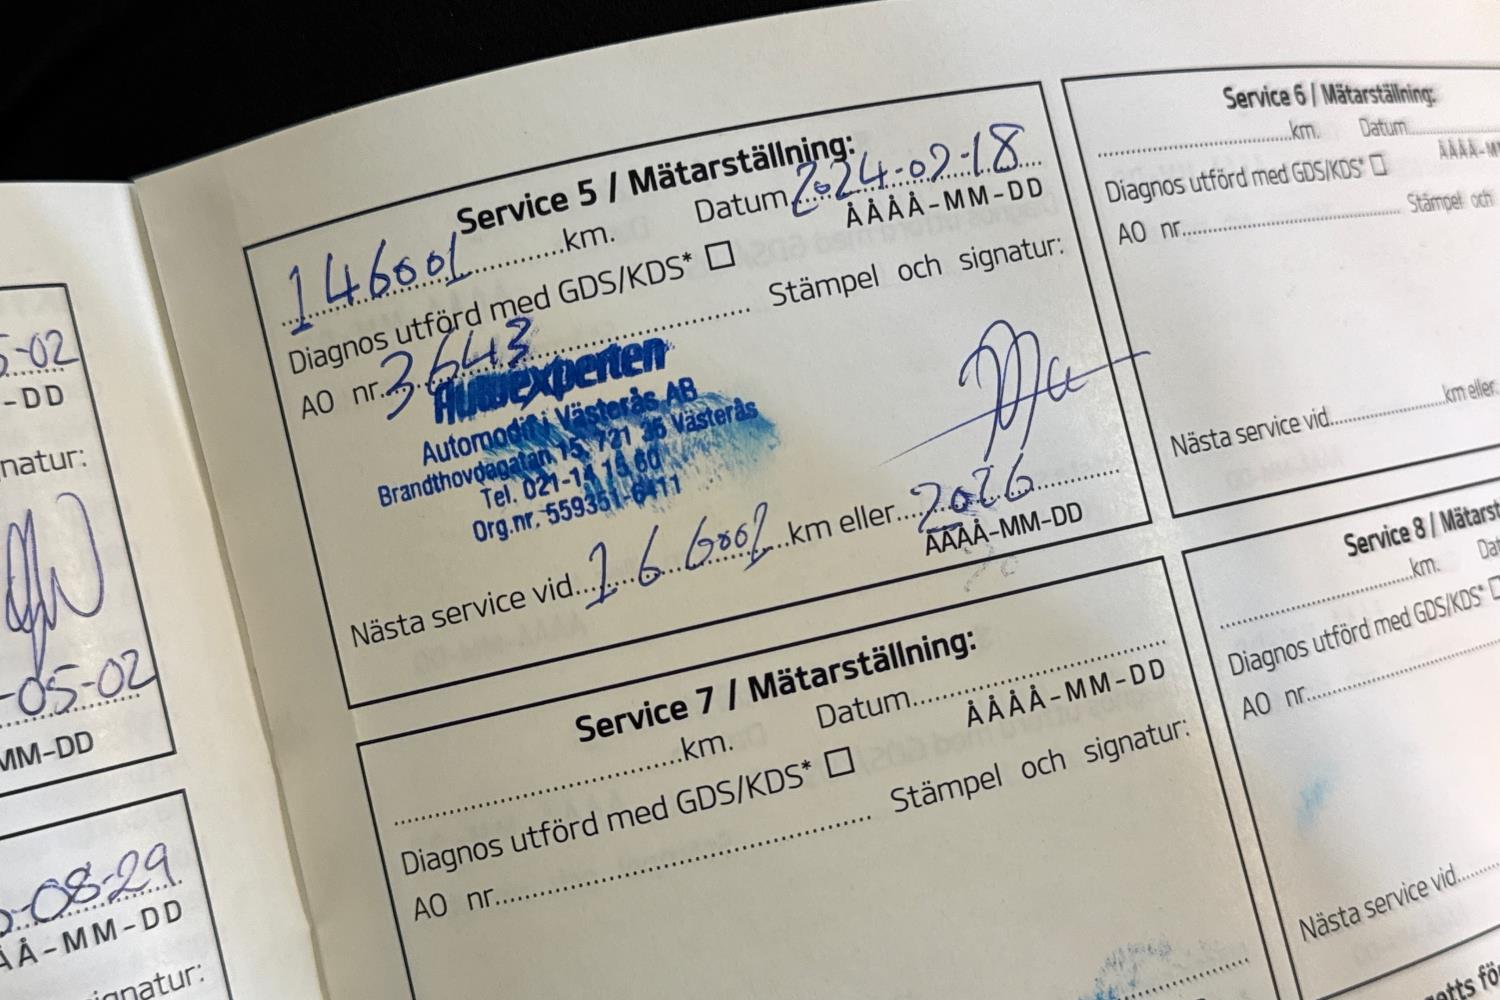 Service 5 / Mätarställning:
146001 km. Datum 2024-02-18
ÅÅÅÅ-MM-DD
Diagnos utförd med GDS/KDS* ☐
AO nr. 3643 Stämpel och signatur:
Autoexperten
Automodify Västerås AB
Brandthovdagatan 15, 721 35 Västerås
Tel. 021-14 15 60
Org.nr. 559351-6411
Nästa service vid 166001 km eller 2026
ÅÅÅÅ-MM-DD
Service 6 / Mätarställning:
km. Datum
ÅÅÅÅ-M
Diagnos utförd med GDS/KDS* ☐
AO nr. Stämpel och
Nästa service vid km eller
Service 7 / Mätarställning:
km. Datum
ÅÅÅÅ-MM-DD
Diagnos utförd med GDS/KDS* ☐
AO nr. Stämpel och signatur:
Service 8 / Mätarst
km. Dat
Diagnos utförd med GDS/KDS*
AO nr.
Nästa service vid
5-02
-DD
natur:
-05-02
MM-DD
-08-29
ÅÅ-MM-DD
gnatur: